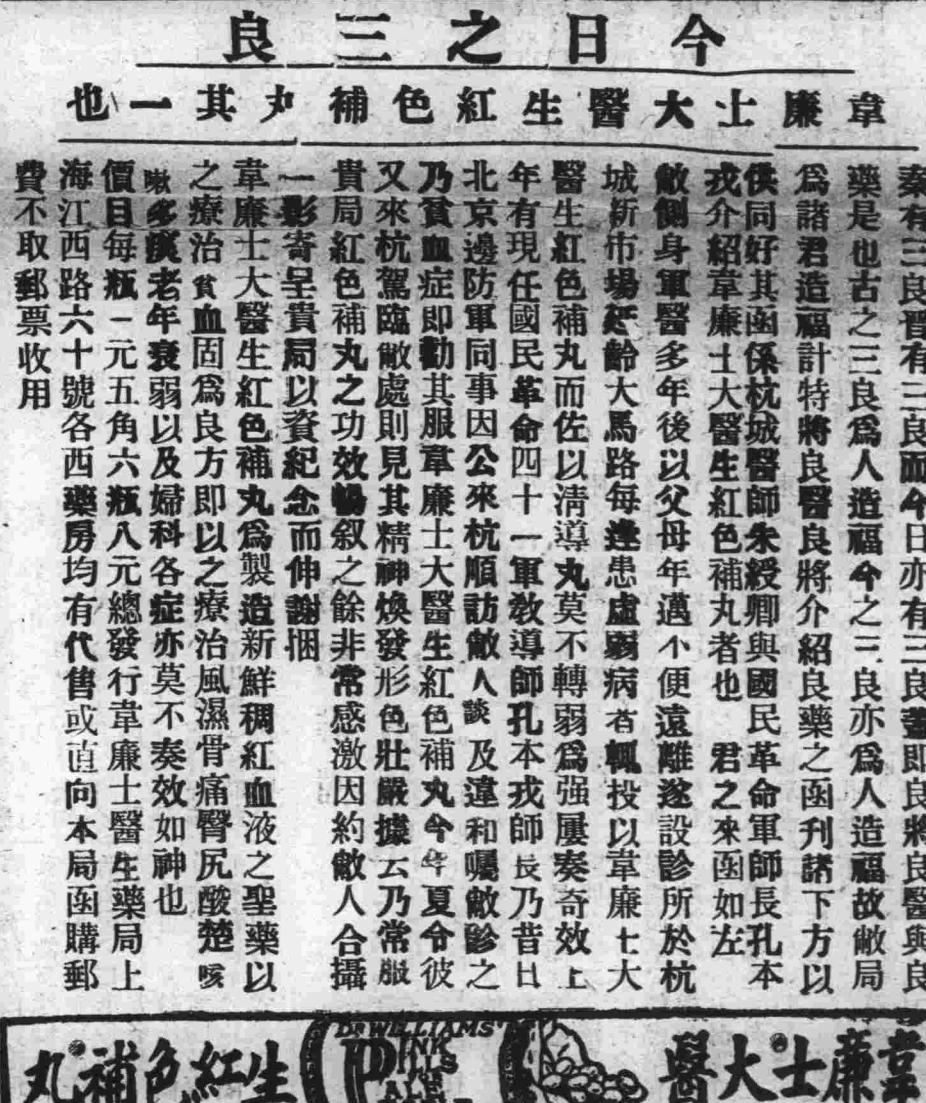 今日之三良
韋廉士大醫生紅色補丸其一也
秦有三良晋有三良而今日亦有三良蓋即良將良醫與良
藥是也古之三良爲人造福今之三良亦爲人造福故敝局
爲諸君造福計特將良醫良將介紹良藥之函刋諸下方以
供同好其函係杭城醫師朱綬卿與國民革命軍師長孔本
戎介紹韋廉士大醫生紅色補丸者也 君之來函如左
敝側身軍醫多年後以父母年邁不便遠離遂設診所於杭
城新市場延齡大馬路每逢患虛弱病者輒投以韋廉士大
醫生紅色補丸而佐以淸導丸莫不轉弱爲强屢奏奇效上
年有現任國民革命四十一軍敎導師孔本戎師長乃昔日
北京邊防軍同事因公來杭順訪敝人談及違和囑敝診之
乃貧血症即勸其服韋廉士大醫生紅色補丸今年夏令彼
又來杭駕臨敝處則見其精神煥發形色壯嚴據云乃常服
貴局紅色補丸之功效暢叙之餘非常感激因約敝人合攝
一影寄呈貴局以資紀念而伸謝悃
韋廉士大醫生紅色補丸爲製造新鮮稠紅血液之聖藥以
之療治貧血固爲良方即以之療治風濕骨痛臀尻酸楚咳
嗽多痰老年衰弱以及婦科各症亦莫不奏效如神也
價目每瓶一元五角六瓶八元總發行韋廉士醫生藥局上
海江西路六十號各西藥房均有代售或直向本局函購郵
費不取郵票收用
韋廉士大醫生紅色補丸
DR WILLIAMS'
PINK
PILLS